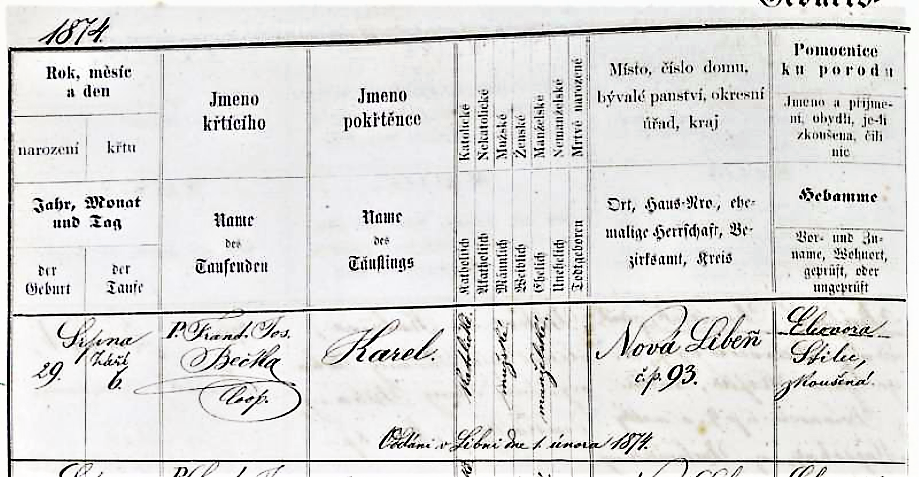 1874.
Rok, měsíc
a den
narození
křtu
Jahr, Monat
und Tag
der
Geburt
der
Taufe
Jmeno
křtícího
Name
des
Taufenden
Jmeno
pokřtěnce
Name
des
Täuflings
Katolické
Nekatolické
Mužské
Ženské
Manželské
Nemanželské
Mrtvě narozené
Katholisch
Akatholisch
Männlich
Weiblich
Ehelich
Unehelich
Todtgeboren
Místo, číslo domu,
bývalé panství, okresní
úřad, kraj
Ort, Haus-Nro., ehe-
malige Herrschaft, Be-
zirksamt, Kreis
Pomocnice
ku porodu
Jmeno a příjme-
ní, obydlí, je-li
zkoušena, čili
nic
Hebamme
Vor- und Zu-
name, Wohnort,
geprüft, oder
ungeprüft
Srpna
29.
Září
6.
P. Frant. Jos.
Bečka
Coop.
Karel.
Katolické
mužské
manželské
Nová Libeň
č.p. 93.
Eleonora
zkoušená.
Oddáni v Libni dne 1. února 1874.